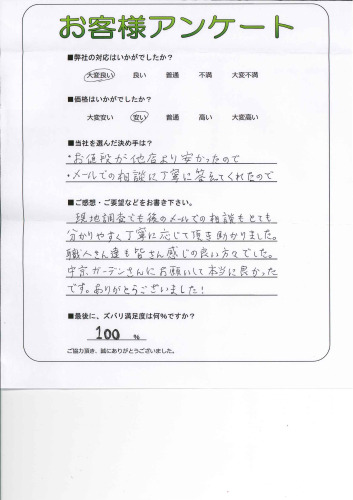 お客様アンケート
■弊社の対応はいかがでしたか？
大変良い 良い 普通 不満 大変不満
■価格はいかがでしたか？
大変安い 安い 普通 高い 大変高い
■当社を選んだ決め手は？
・お値段が他店より安かったので
・メールでの相談に丁寧に答えてくれたので
■ご感想・ご要望などをお書き下さい。
現地調査でも後のメールでの相談もとても
分かりやすく丁寧に応じて頂き助かりました。
職人さん達も皆さん感じの良い方々でした。
中京ガーデンさんにお願いして本当に良かった
です。ありがとうございました！
■最後に、ズバリ満足度は何％ですか？
100 %
ご協力頂き、誠にありがとうございました。